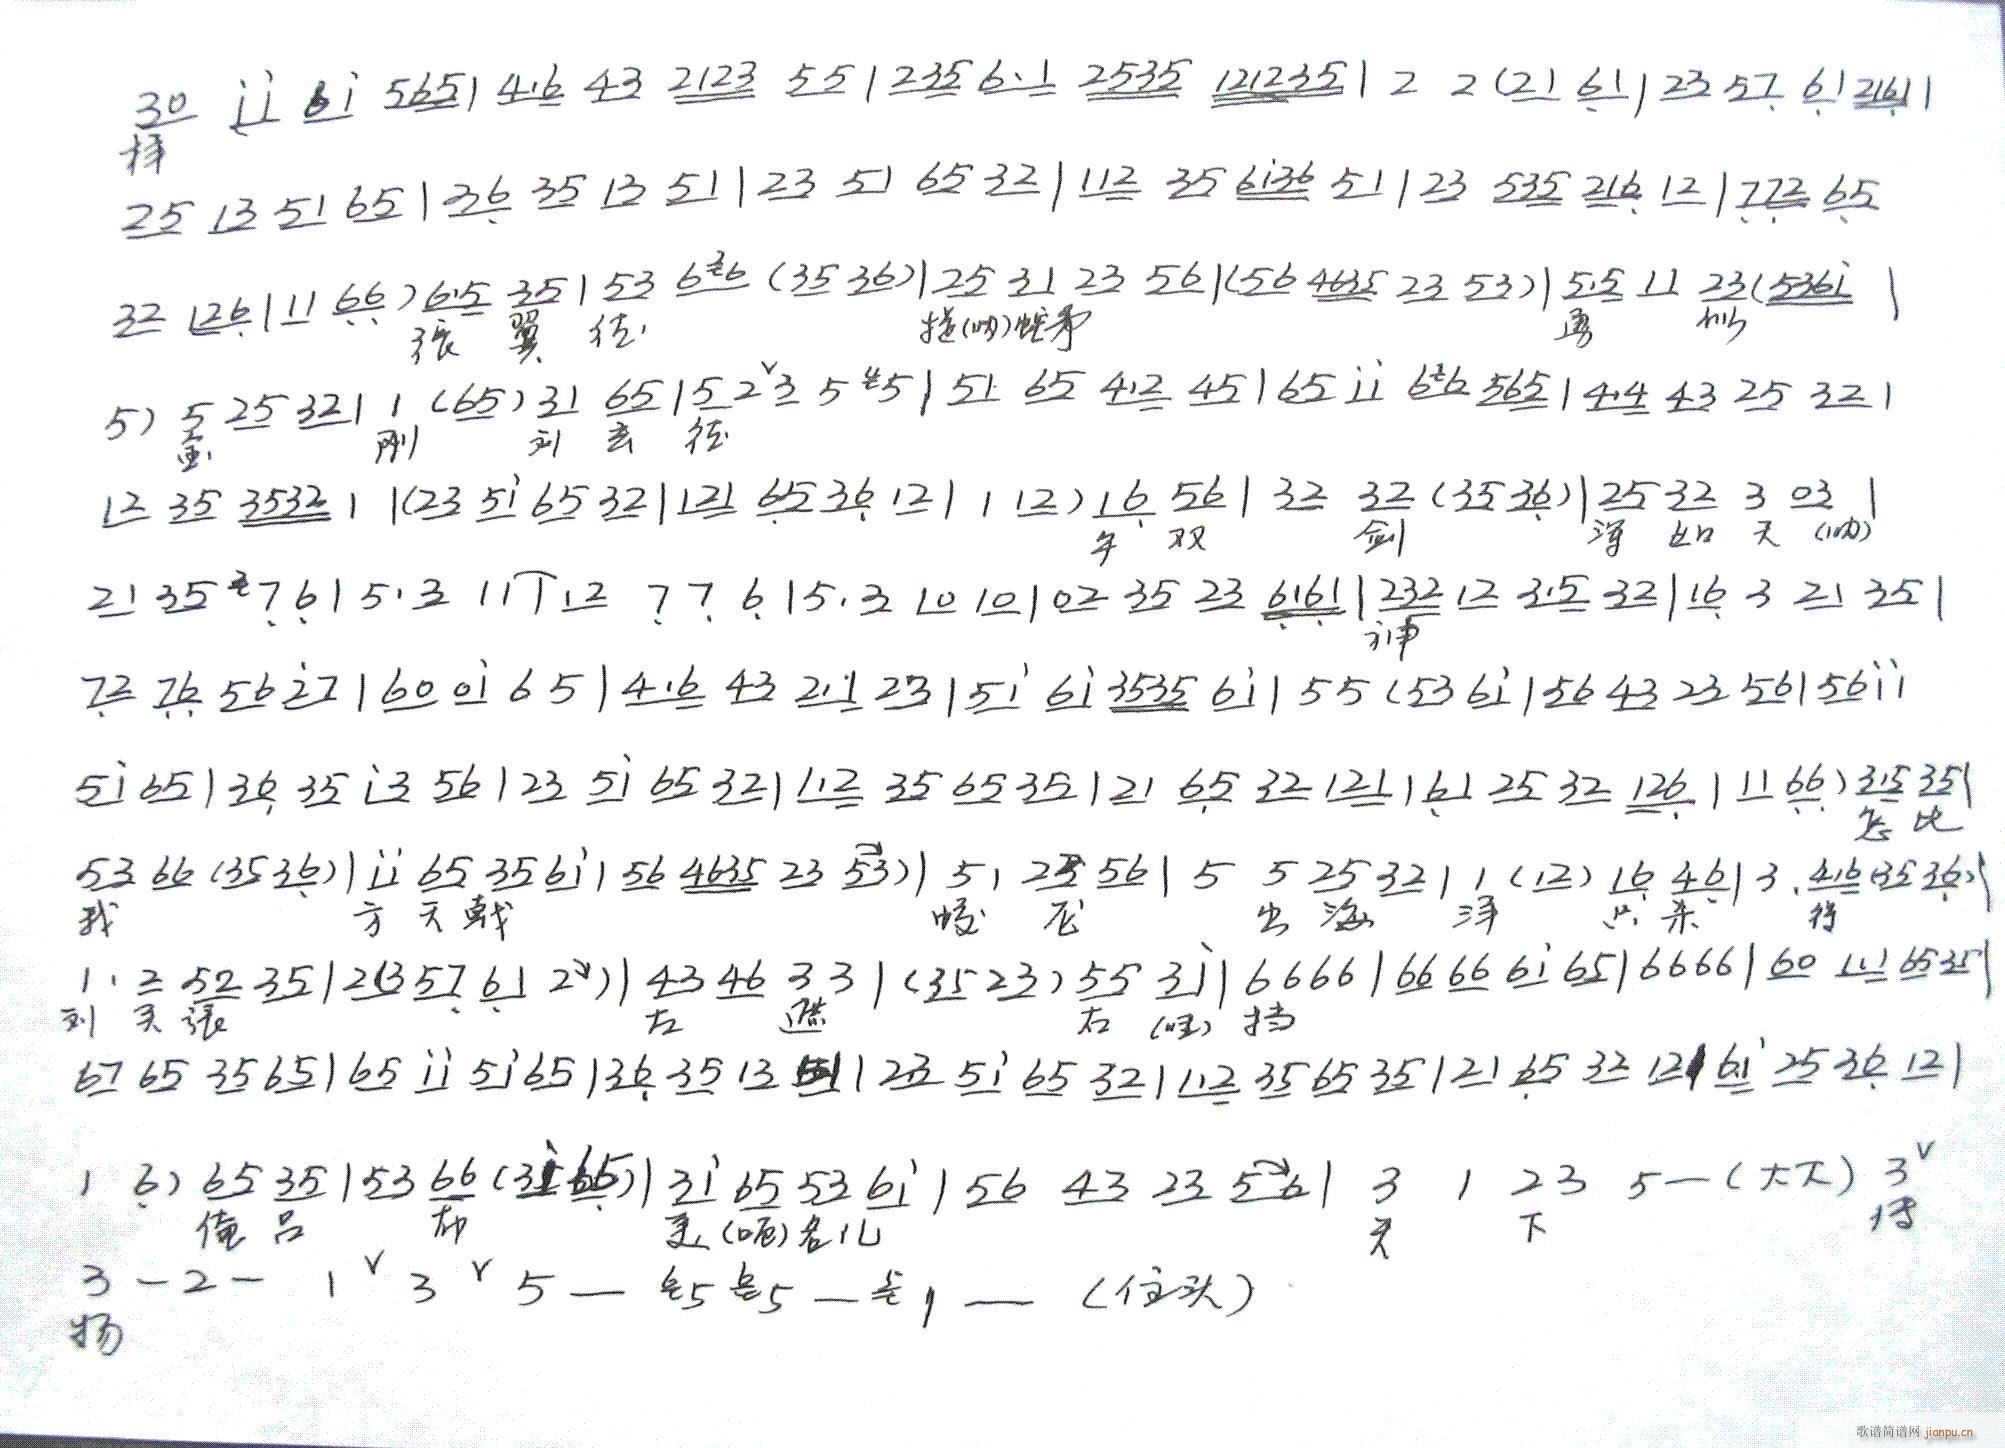 30 ii 6i 565 | 4·6 43 2123 55 | 235 6·1 2535 121235 | 2 2 (21 61 | 23 57 61 2161 |
25 13 51 65 | 36 35 13 51 | 23 51 65 32 | 112 35 6i36 51 | 23 535 216 12 | 772 65
32 126 | 11 66) 6·5 35 | 53 6 6 (35 36) | 25 31 23 56 | (56 4635 23 53) | 5·5 11 23 (536i |
张 翼 德 (呐) 蛇矛 勇 似
5) 5 25 32 | 1 (65) 31 65 | 5 2 ˅3 5 5 | 51 65 4·2 45 | 65 ii 6 6 565 | 4·4 43 25 32 |
金 刚 刘 玄 德
12 35 3532 1 | (23 5i 65 32 | 121 65 36 12 | 1 12) 16 56 | 32 32 (35 36) | 25 32 3 03 |
双 剑 浑 如 天 (呐)
21 35 7 6 | 5·3 11 12 7 7 6 | 5·3 10 10 | 02 35 23 6161 | 232 12 3·5 32 | 16 3 21 35 |
神
72 76 56 27 | 60 0i 65 | 4·6 43 2·1 23 | 5i 6i 3535 6i | 55 (53 6i | 56 43 23 56 | 56 ii
5i 65 | 36 35 i3 56 | 23 5i 65 32 | 1·2 35 65 35 | 21 65 32 121 | 61 25 32 126 | 11 66) 3·5 35 |
怎 比
53 66 (35 36) | ii 65 35 6i | 56 4635 23 53) | 51 23 56 | 5 5 25 32 | 1 (12) 16 46 | 3· 4·6 (35 36) |
我 方 天 戟 蛟 龙 出 海 洋 只 杀 得
1· 2 52 35 | 2 (3 57 61 2) | 43 46 33 | (35 23) 55 3i | 6666 | 66 66 6i 65 | 6666 | 60 111 65 35 |
刘 关 张 左 遮 右 (哇) 挡
67 65 35 65 | 65 ii 5i 65 | 36 35 13 51 | 23 5i 65 32 | 1·2 35 65 35 | 21 65 32 12 | 6i 25 36 12 |
1 6) 65 35 | 53 66 (3 65) | 3i 65 53 6i | 56 43 23 56 | 3 1 23 5— (大大) 3˅
俺 吕 布 美 (呃) 名儿 天 下 传
3 — 2 — 1 ˅ 3 ˅ 5 — 5 5 — 1 — (住头)
扬
歌谱简谱网 jianpu.cn